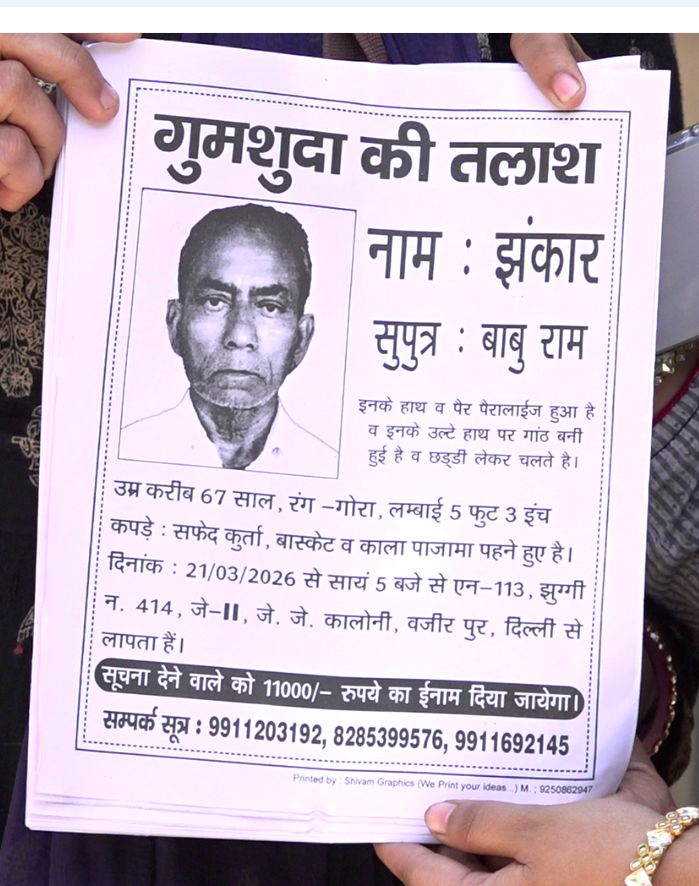 गुमशुदा की तलाश
नाम : झंकार
सुपुत्र : बाबु राम
इनके हाथ व पैर पैरालाईज हुआ है
व इनके उल्टे हाथ पर गांठ बनी
हुई है व छड्डी लेकर चलते है।
उम्र करीब 67 साल, रंग –गोरा, लम्बाई 5 फुट 3 इंच
कपड़े : सफेद कुर्ता, बास्केट व काला पाजामा पहने हुए है।
दिनांक : 21/03/2026 से सायं 5 बजे से एन–113, झुग्गी
न. 414, जे–II, जे. जे. कालोनी, वजीर पुर, दिल्ली से
लापता हैं।
सूचना देने वाले को 11000/– रुपये का ईनाम दिया जायेगा।
सम्पर्क सूत्र : 9911203192, 8285399576, 9911692145
Printed by : Shivam Graphics (We Print your ideas...) M. ; 9250862947